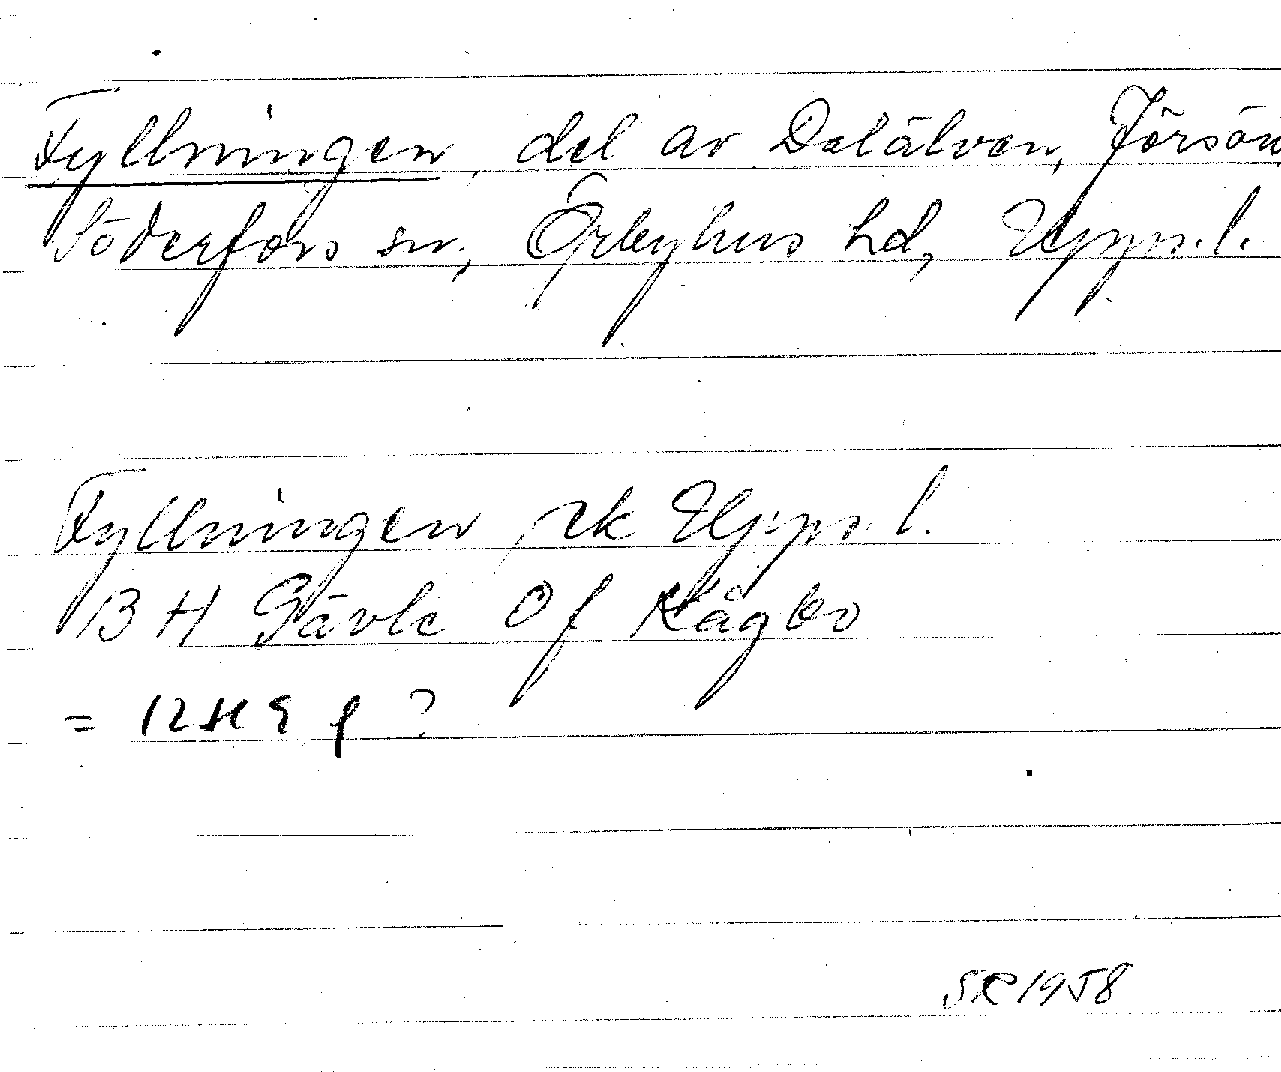 Fyllningen, del av Dalälven, Jörsön
Söderfors sn, Örbyhus hd, Upps. l.
Fyllningen, ek Upps. l.
13 H Gävle 0f Kågbo
= 12H 9 f ?
SR 1958